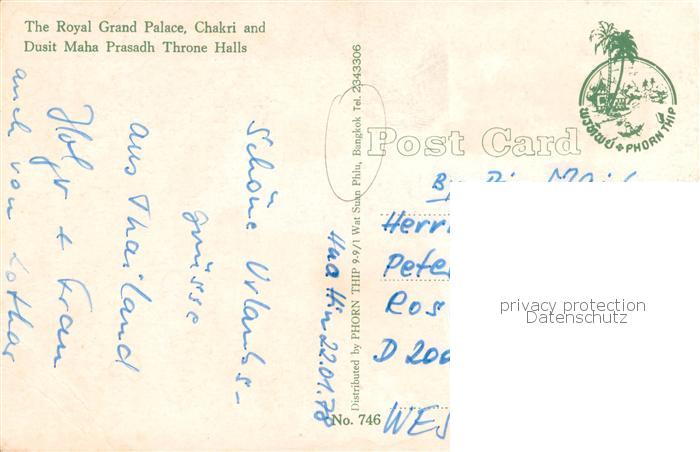 The Royal Grand Palace, Chakri and
Dusit Maha Prasadh Throne Halls
Hua Hin 22.01.78
Schöne Urlaubs-
grüsse
aus Thailand
Holger + Frau
auch von Lothar
Distributed by PHORN THIP 9-9/1 Wat Suan Phlu, Bangkok Tel. 2343306
No. 746
Post Card
พรทิพย์ + PHORN THIP
By
Herr
Pete
Ros
D 200
WES
privacy protection
Datenschutz